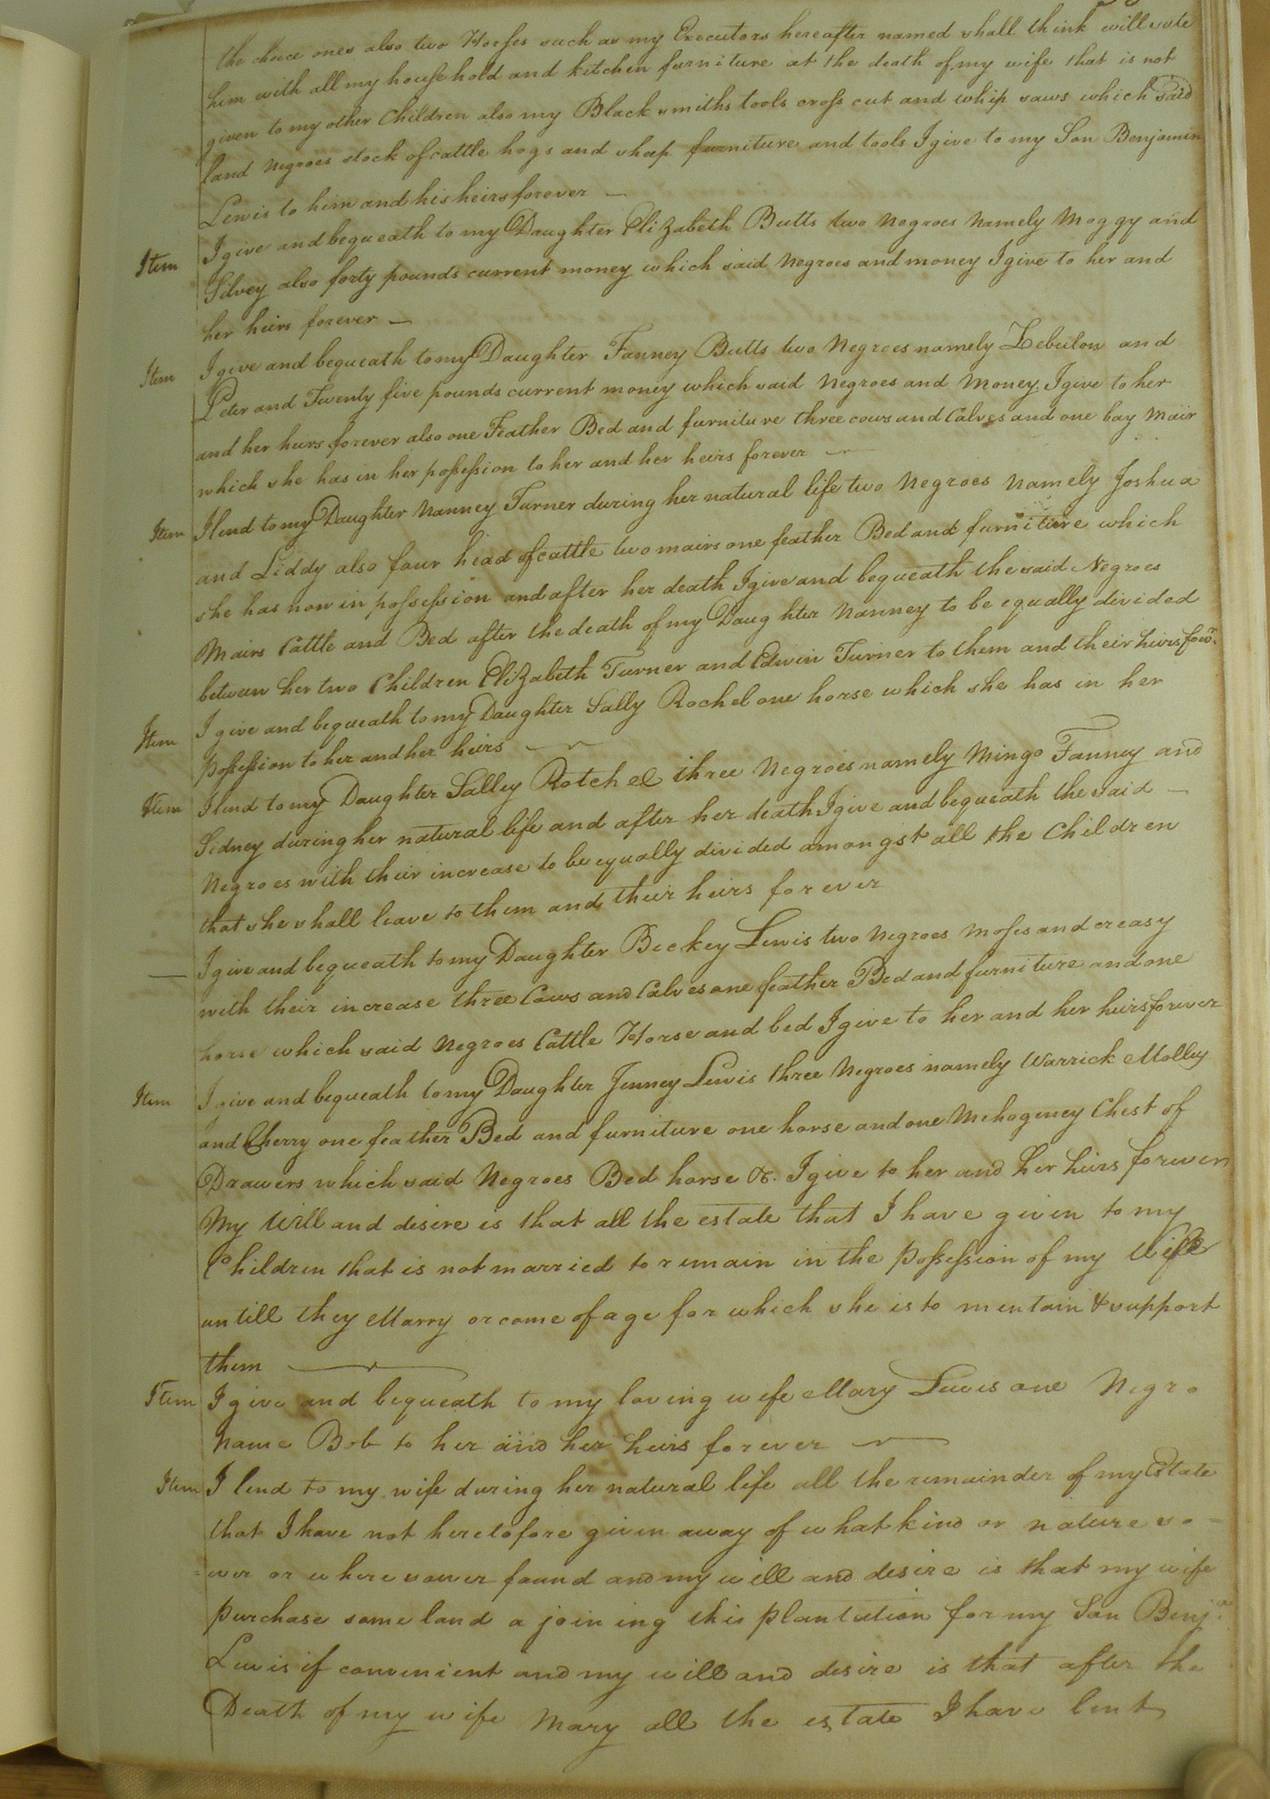 the choice ones also two Horses such as my Executors hereafter named shall think will sute
him with all my household and kitchen furniture at the death of my wife that is not
given to my other Children also my Black smiths tools cross cut and whip saws which said
land Negroes stock of cattle hogs and sheep furniture and tools I give to my Son Benjamin
Lewis to him and his heirs forever —
Item I give and bequeath to my Daughter Elizabeth Butts two Negroes Namely Moggy and
Silvey also forty pounds current money which said Negroes and money I give to her and
her heirs forever —
Item I give and bequeath to my Daughter Fanney Butts two Negroes namely Zebulon and
Peter and Twenty five pounds current money which said Negroes and Money I give to her
and her heirs forever also one Feather Bed and furniture three cows and Calves and one bay Mair
which she has in her possession to her and her heirs forever —
Item I lend to my Daughter Nanney Turner during her natural life two Negroes Namely Joshua
and Liddy also four head of cattle two mairs one feather Bed and furniture which
she has now in possession and after her death I give and bequeath the said Negroes
Mairs Cattle and Bed after the death of my Daughter Nanney to be equally divided
between her two Children Elizabeth Turner and Edwin Turner to them and their heirs
Item I give and bequeath to my Daughter Sally Rochel one horse which she has in her
Possession to her and her heirs —
Item I lend to my Daughter Salley Rotchel three Negroes namely Mingo Fanney and
Sidney during her natural life and after her death I give and bequeath the said —
Negroes with their increase to be equally divided amongst all the Children
that she shall leave to them and their heirs forever
— I give and bequeath to my Daughter Beckey Lewis two Negroes Moses and creasy
with their increase three Cows and Calves one feather Bed and furniture and one
horse which said Negroes Cattle Horse and bed I give to her and her heirs forever
Item I give and bequeath to my Daughter Jenney Lewis three Negroes namely Warrick Molley
and Cherry one feather Bed and furniture one horse and one Mehogeney Chest of
Drawers which said Negroes Bed horse &c. I give to her and her heirs forever
My Will and desire is that all the estate that I have given to my
Children that is not married to remain in the Possession of my Wife
untill they Marry or come of age for which she is to mentain & support
them —
Item I give and bequeath to my loving wife Mary Lewis one Negro
name Bob to her and her heirs forever —
Item I lend to my wife during her natural life all the remainder of my Estate
that I have not heretofore given away of what kind or nature so -
= ever or where soever found and my will and desire is that my wife
Purchase some land a joining this Plantation for my Son Benjn
Lewis if convenient and my will and desire is that after the
Death of my wife Mary all the estate I have lent